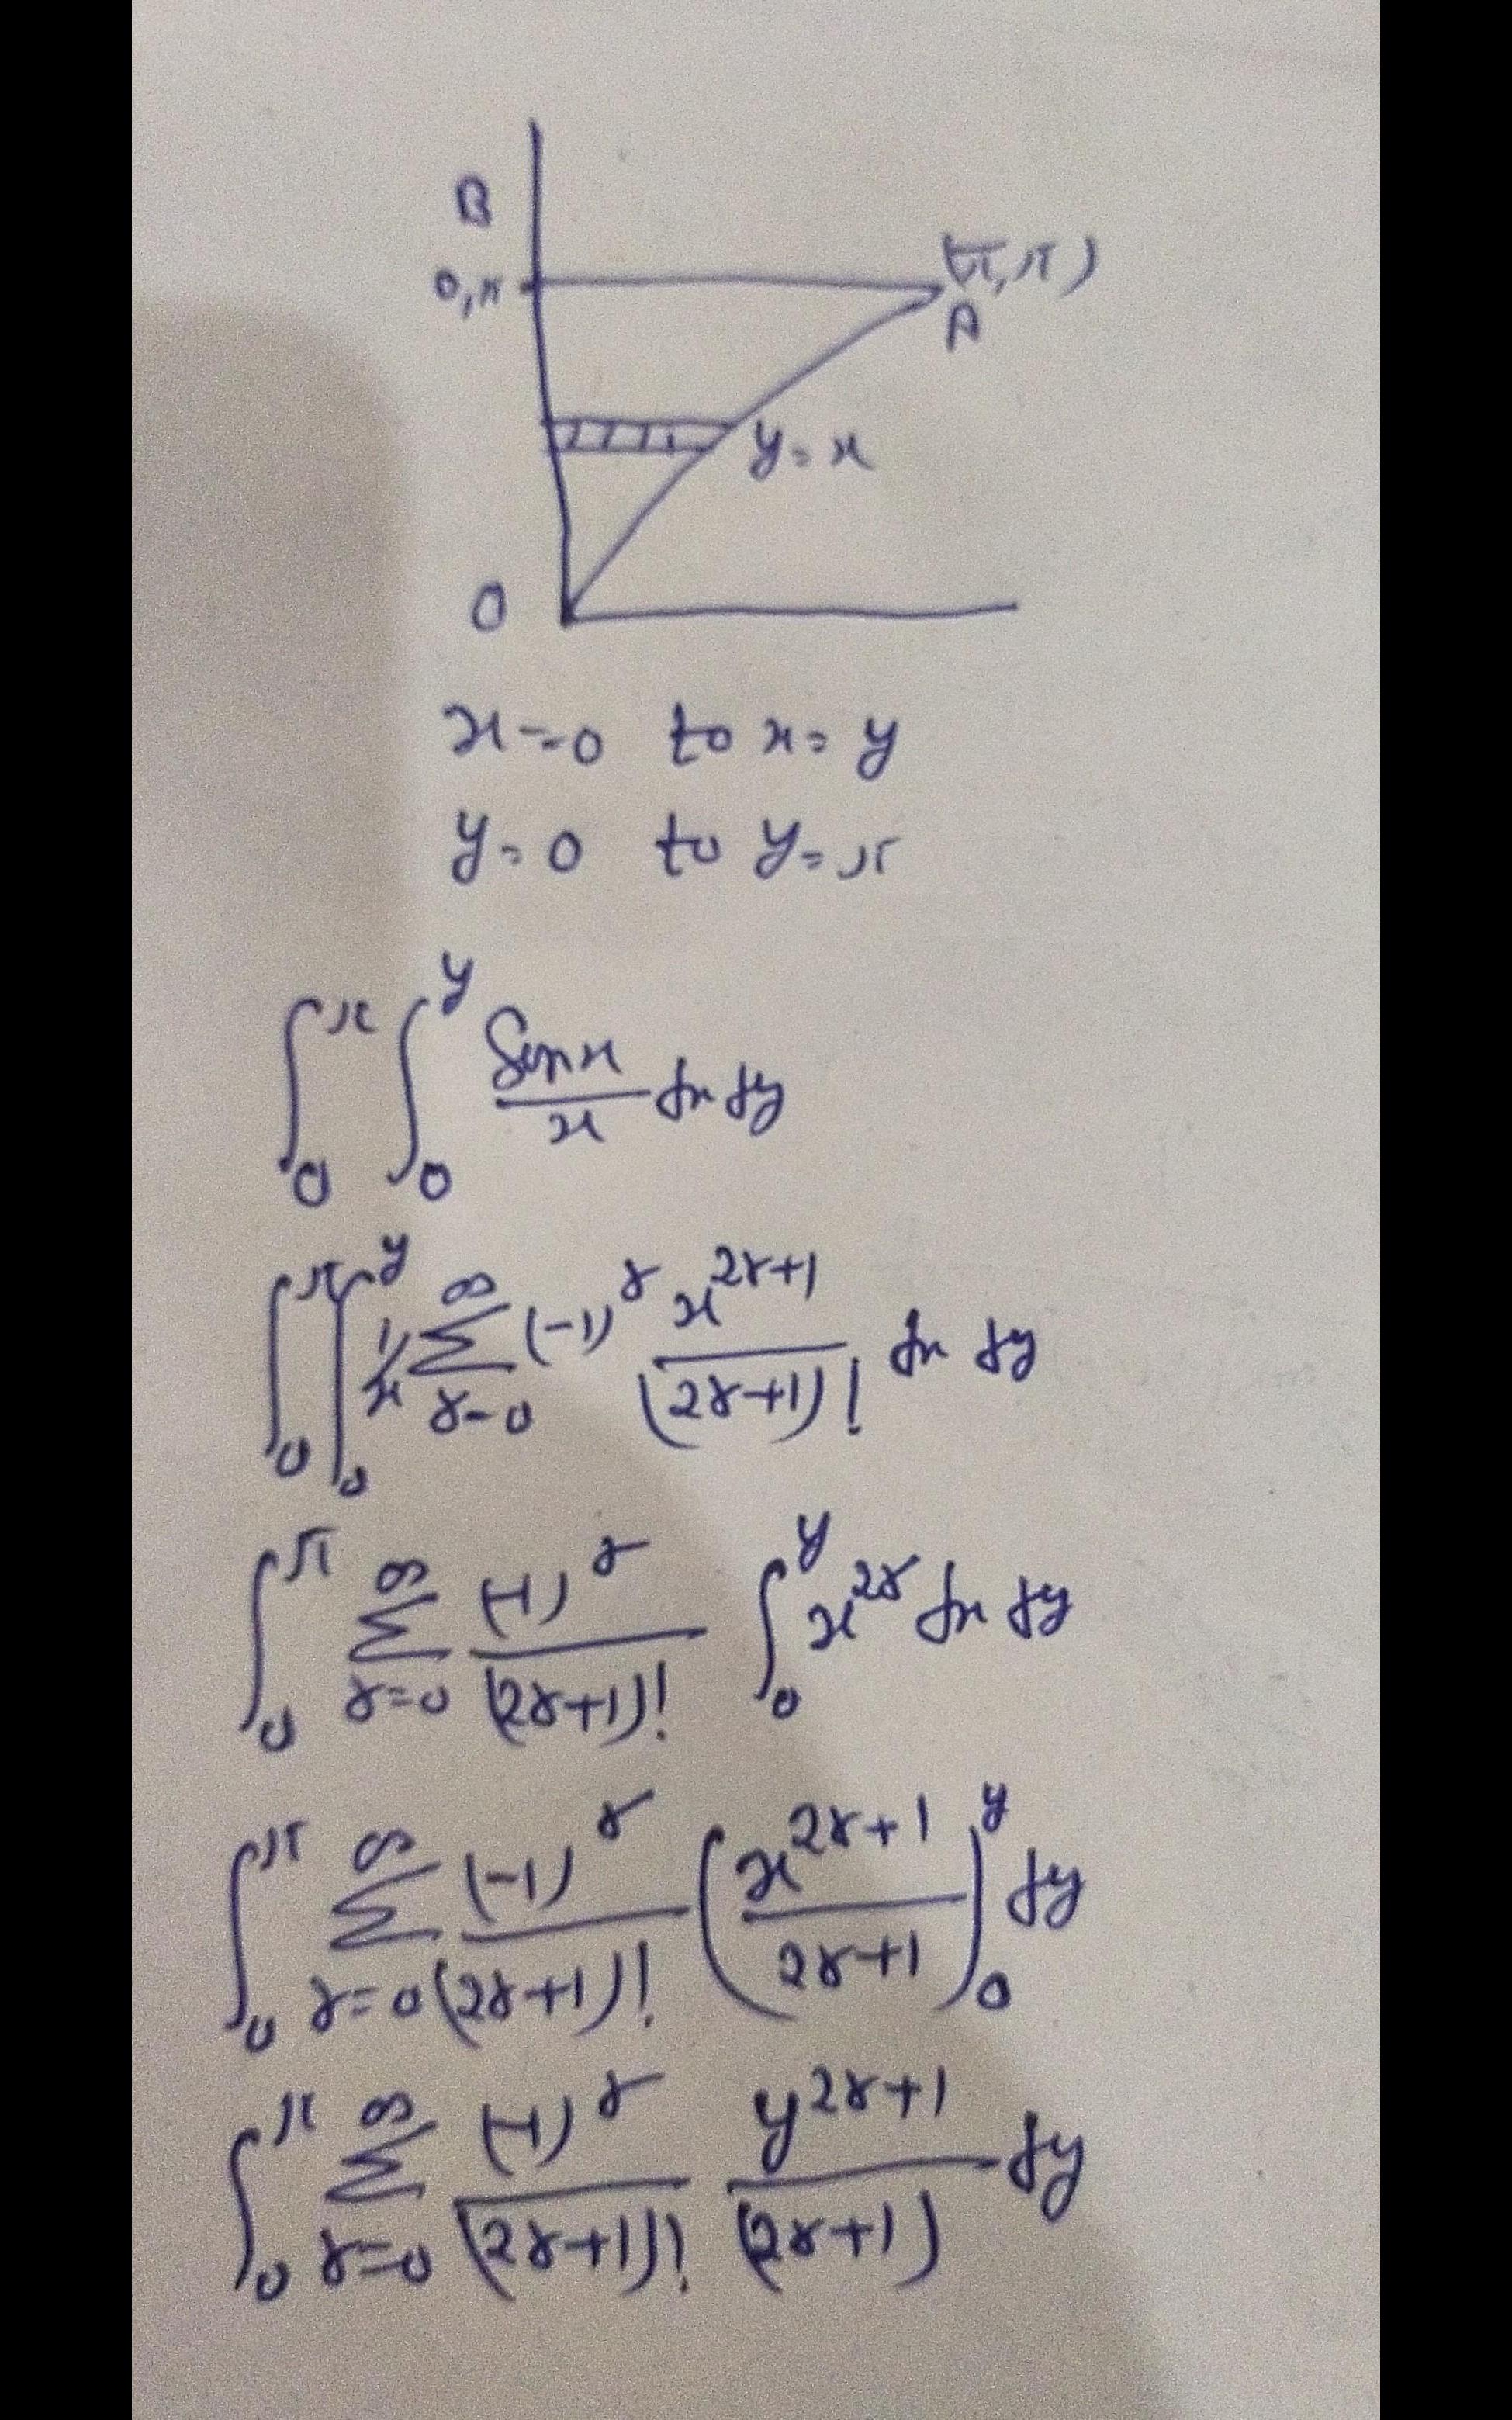 B
0,π
(π,π)
A
y=x
0
x=0 to x=y
y=0 to y=π
∫₀^π ∫₀^y Sinx/x dx dy
∫₀^π ∫₀^y 1/x ∑_{r=0}^∞ (-1)^r x^{2r+1}/(2r+1)! dx dy
∫₀^π ∑_{r=0}^∞ (-1)^r/(2r+1)! ∫₀^y x^{2r} dx dy
∫₀^π ∑_{r=0}^∞ (-1)^r/(2r+1)! (x^{2r+1}/2r+1)₀^y dy
∫₀^π ∑_{r=0}^∞ (-1)^r/(2r+1)! y^{2r+1}/(2r+1) dy